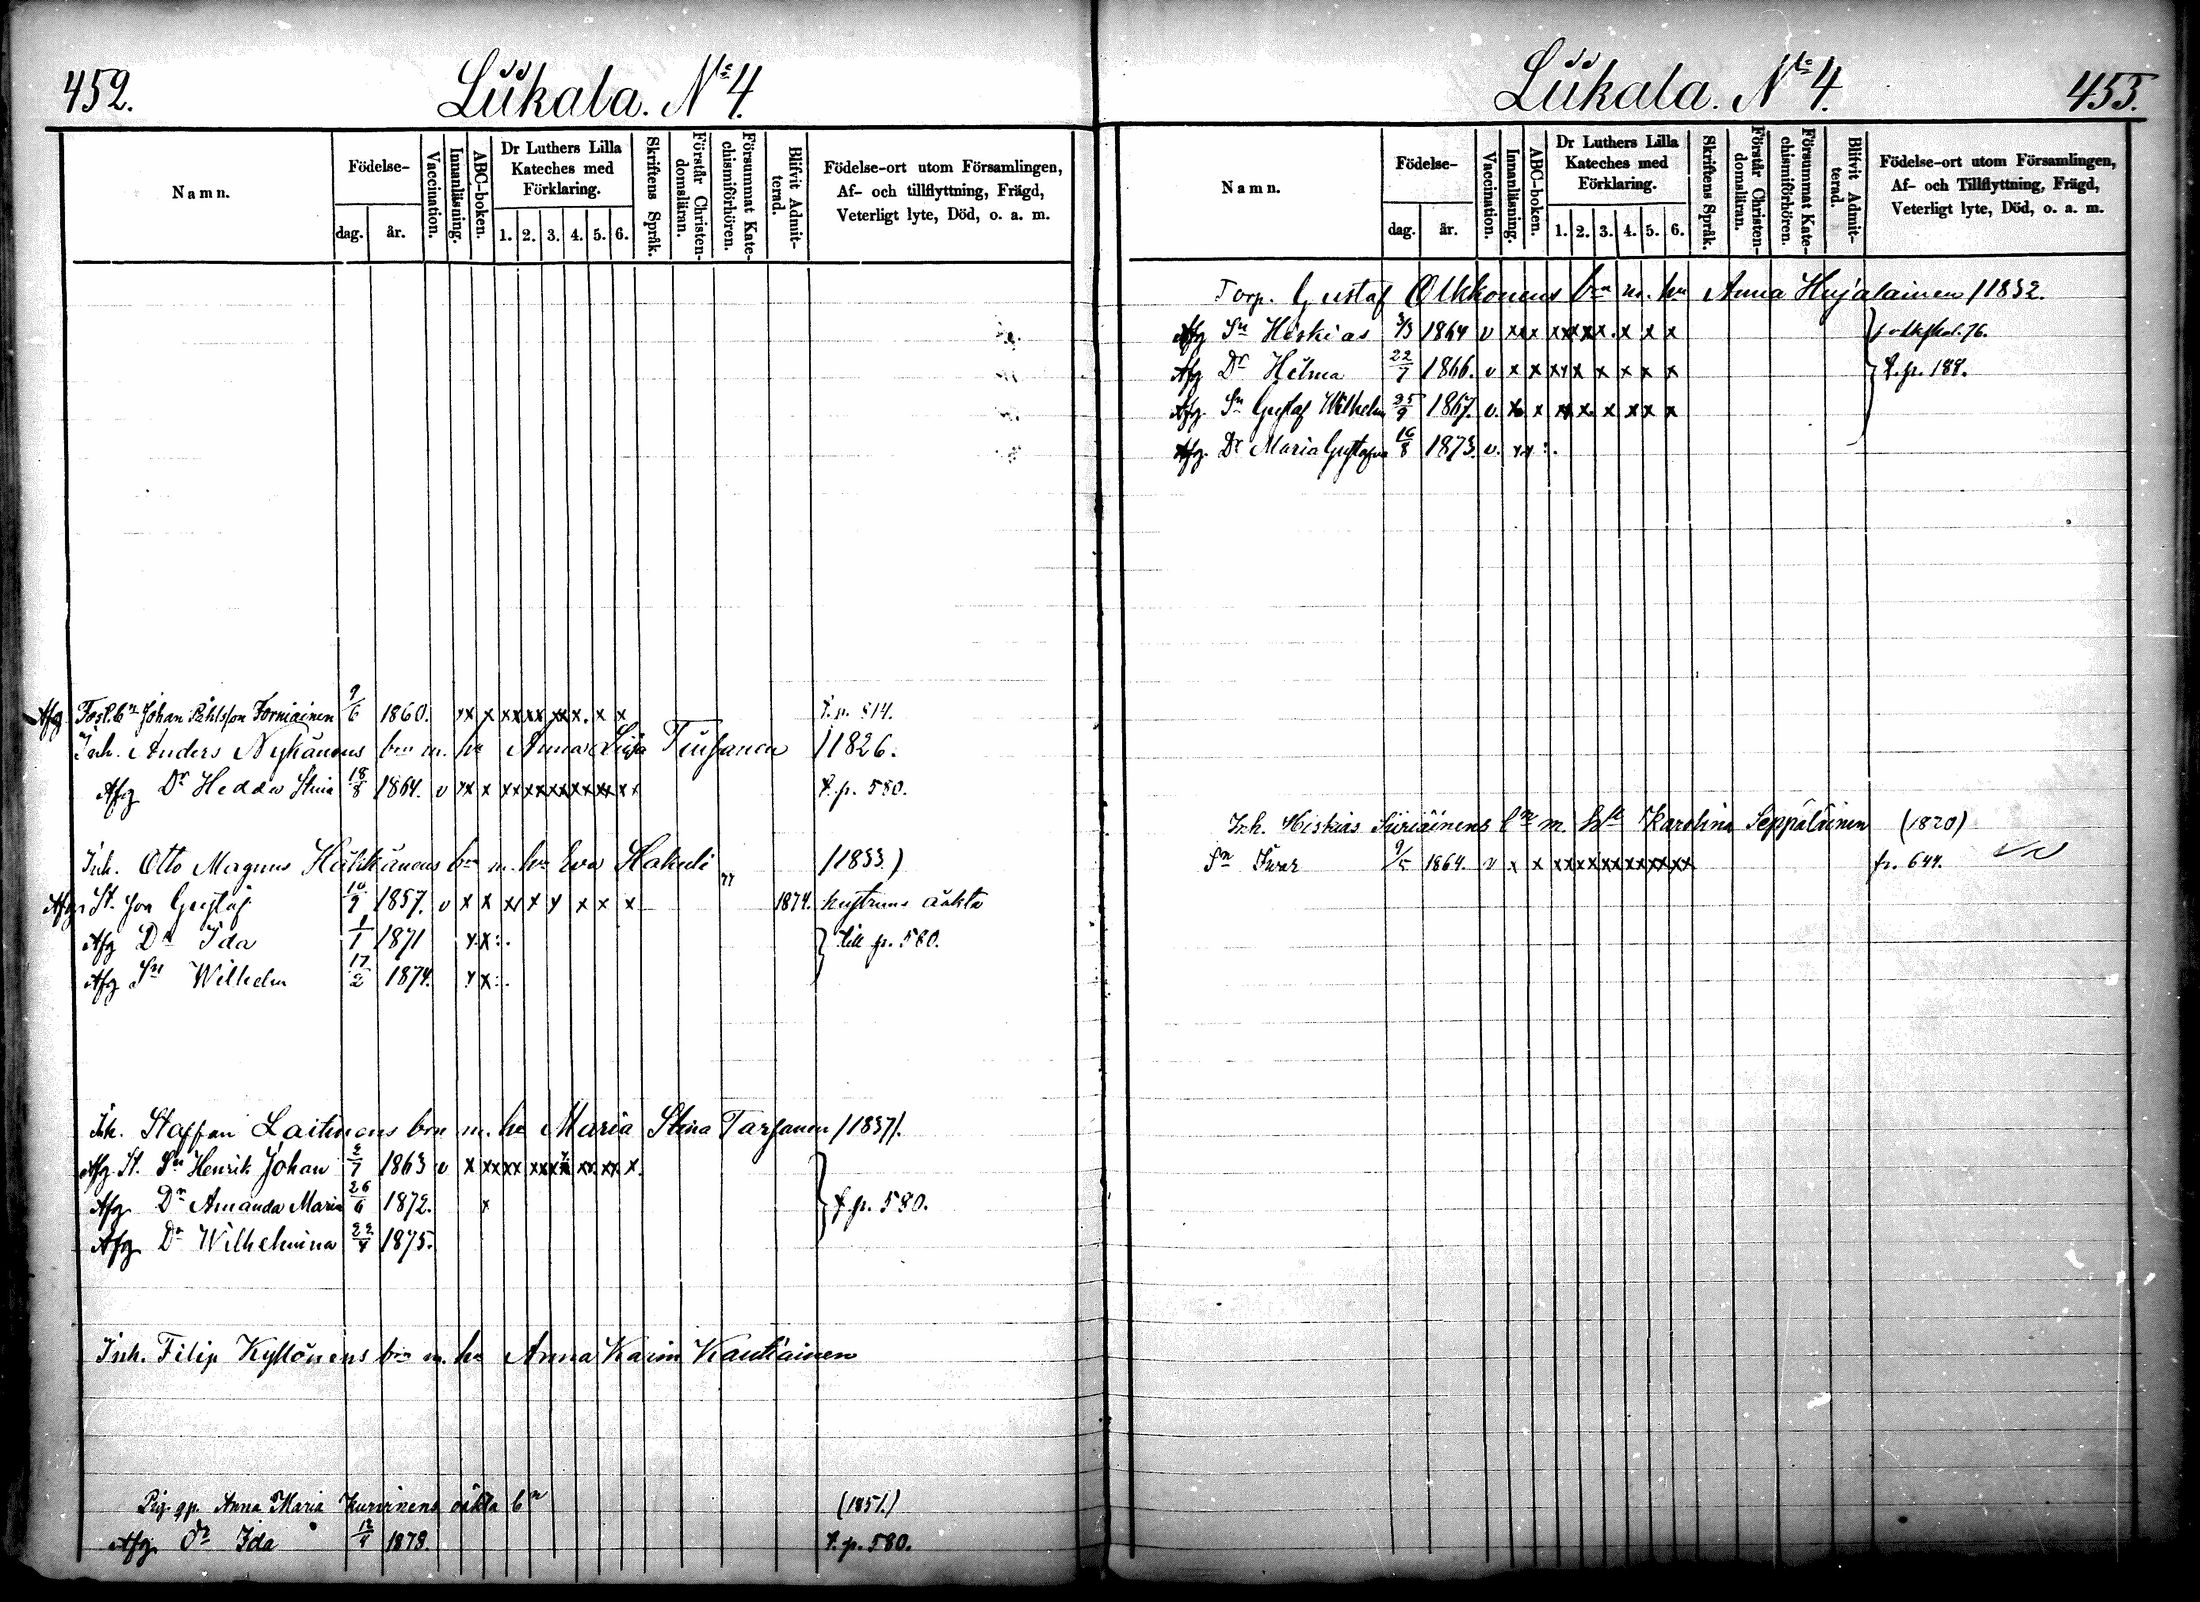 452.
Liikala. No 4.
Namn.
Födelse-
dag.
år.
Vaccination.
Innanläsning.
ABC-boken.
Dr Luthers Lilla Kateches med Förklaring.
1. 2. 3. 4. 5. 6.
Skriftens Språk.
Förstår Christen-domsläran.
Försummat Kate-chismiförhören.
Blifvit Admit-terad.
Födelse-ort utom Församlingen,
Af- och tillflyttning, Frägd,
Veterligt lyte, Död, o. a. m.
Afg. Johan 9/6 1860. x x x x x x x x x x f. p. 514.
Inh. Anders Nykänens bn m. hu Anna Lisa 1826.
Afg Dr Hedda Stina 18/8 1864. v x x x x x x x x x x x x x f. p. 580.
Inh. Otto Magnus bn m. hu Eva Hakuli (1833)
Afg. Gustaf 10/9 1857. v x x x x x x x x 1874. hustruns oäkta
Afg Dr Ida 1/1 1871 x x till p. 580.
Afg Sn Wilhelm 17/2 1874. x x
Inh. Staffan Laitinens bn m. hu Maria Stina Tarhanen /1837/.
Afg St. Sn Henrik Johan 2/7 1863 v x x x x x x x x x x x x x
Afg. Dr Amanda Maria 26/6 1872. x f. p. 580.
Afg. Dr Wilhelmina 22/4 1875.
Inh. Filip Kyllönens bn m. hu Anna Karin Kautiainen
Pig. Anna Maria Kurvinens oäkta bn (1851.)
Afg. Dr Ida 12/4 1878 f. p. 580.
Liikala. No 4.
453.
Namn.
Födelse-
dag.
år.
Vaccination.
Innanläsning.
ABC-boken.
Dr Luthers Lilla Kateches med Förklaring.
1. 2. 3. 4. 5. 6.
Skriftens Språk.
Förstår Christen-domsläran.
Försummat Kate-chismiförhören.
Blifvit Admit-terad.
Födelse-ort utom Församlingen,
Af- och Tillflyttning, Frägd,
Veterligt lyte, Död, o. a. m.
Torp. Gustaf Olkkonens bn m. hu Anna Hujalainen /1832.
Afg Sn Hiskias 3/3 1864 v x x x x x x x x x x folkskol. 76.
Afg Dr Hilma 22/7 1866. v x x x x x x x x x f. p. 188.
Afg. Sn Gustaf Wilhelm 25/9 1867. v. x x x x x x x x
Afg. Dr Maria Gustafva 16/8 1873. v. x x
Inh. Hiskias bn m. Karolina Seppäläinen (1820)
Sn Ivar 9/5 1864. v x x x x x x x x x x x x p. 644.